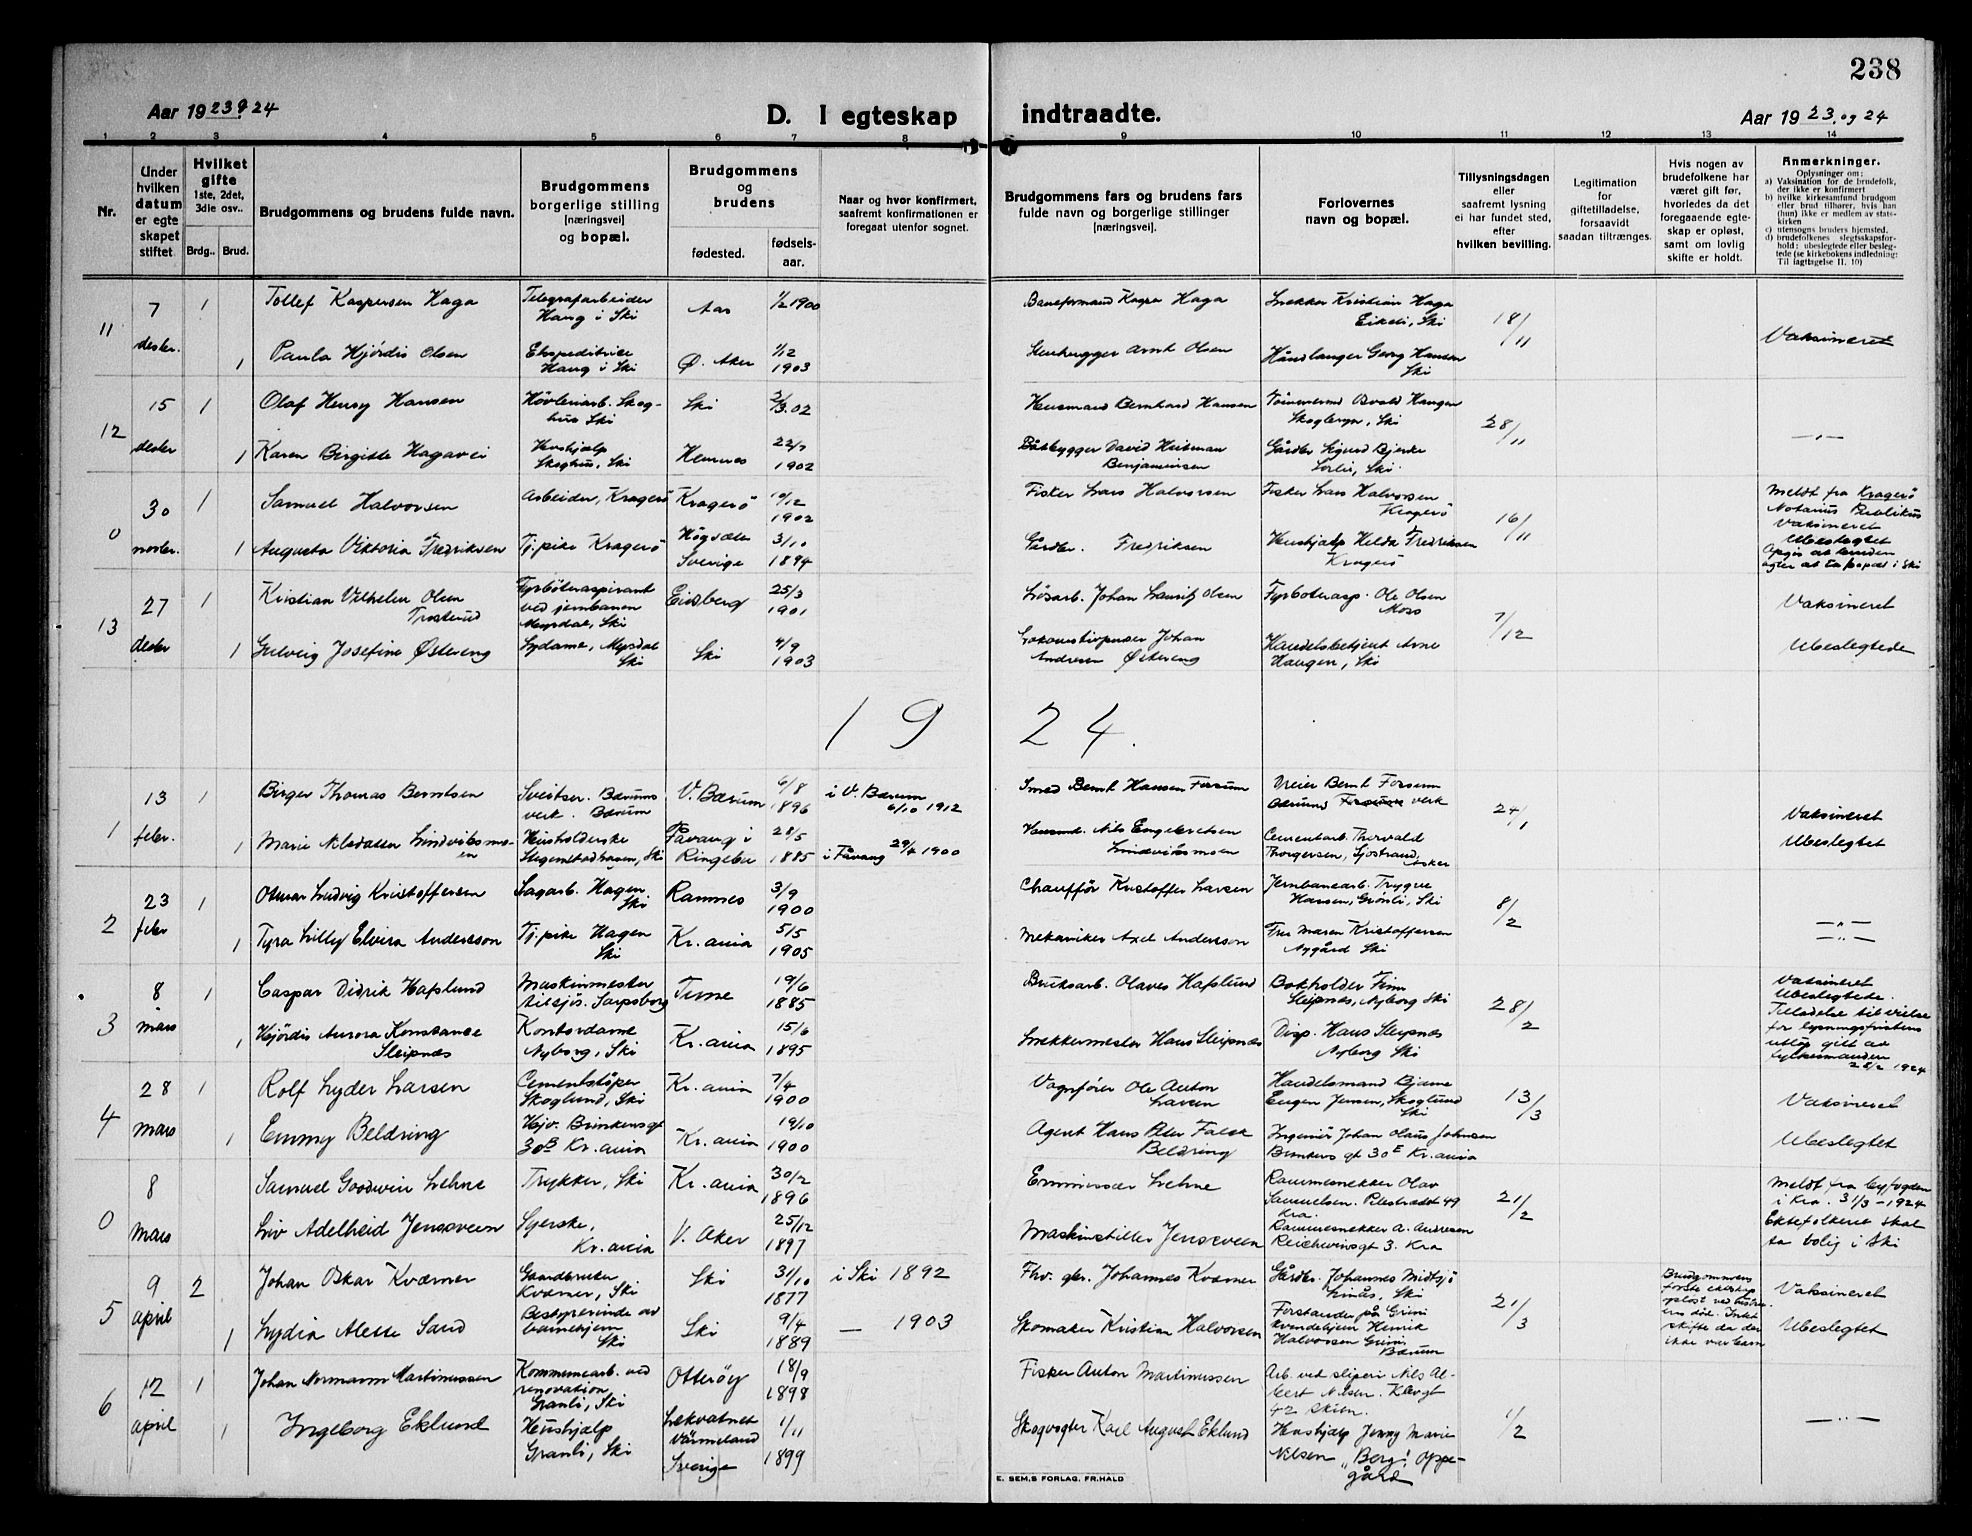 238
Aar 1923 & 24
D. I egteskap indtraadte.
Aar 1923 og 24
1 2 3 4 5 6 7 8 9 10 11 12 13 14
Nr.
Under hvilken datum er egteskapet stiftet
Hvilket gifte 1ste, 2det, 3die osv..
Brdg.. Brud.
Brudgommens og brudens fulde navn.
Brudgommens borgerlige stilling [næringsvei] og bopæl.
Brudgommens og brudens
fødested.
fødsels-aar.
Naar og hvor konfirmert, saafremt konfirmationen er foregaat utenfor sognet.
Brudgommens fars og brudens fars fulde navn og borgerlige stillinger [næringsvei].
Forlovernes navn og bopæl.
Tillysningsdagen eller saafremt lysning ei har fundet sted, efter hvilken bevilling.
Legitimation for giftetilladelse, forsaavidt saadan tiltrænges.
Hvis nogen av brudefolkene har været gift før, hvorledes da det foregaaende egteskap er opløst, samt om lovlig skifte er holdt.
Anmerkninger.
Oplysninger om:
a) Vaksination for de brudefolk, der ikke er konfirmert
b) hvilke kirkesamfund brudgom eller brud tilhører, hvis han (hun) ikke er medlem av statskirken
c) utensogns bruders hjemsted.
d) brudefolkenes slegtsskapsforhold: ubeslegtede eller beslegtede (se kirkebokens indledning: Til iagttagelse II. 10)
11 7 desbr. 1 Tollef Kaspersen Haga Telegrafarbeider Haug i Ski Aas 1/2 1900 Baneformand Kaspr Haga Snekker Kristian Haga Eikeli, Ski 18/11 Vaksineret
1 Paula Hjördis Olsen Ekspeditrice Haug i Ski Ø. Aker 1/12 1903 Stenhugger Arnt Olsen Håndlanger Georg Hansen Ski
12 15 desbr 1 Olaf Henry Hansen Hövleriarb. Skoghus Ski Ski 2/3.02 Husmand Bernhard Hansen Osvald Haugen Skogbryn, Ski 28/11 —"—
1 Karen Birgitte Hagavei Hushjælp Skoghus, Ski Hemnes 22/7 1902 Båtbygger David Heitman Benjaminsen Gårdbr Sigurd Bjerke Sorli, Ski.
0 30 novbr. 1 Samuel Halvorsen Arbeider, Kragerö Kragerö 10/12 1902 Fisker Lars Halvorsen Fisker Lars Halvorsen Kragerö 16/11 Meldt fra Kragerö Notarius Publikus Vaksineret Ubeslegtet
1 Augusta Viktoria Fredriksen Tj.pike Kragerö Högsäter Sverige 3/10 1894 Gårdbr. Fredriksen Hushjælp Hilda Fredriksen Kragerö Opgis at bruden agter at ta bopæl i Ski
13 27 desbr 1 Kristian Vilhelm Olsen Trosterud Fyrböteraspirant ved jernbanen Myrdal, Ski Eidsberg 25/3 1901 Lösarb. Johan Lauritz Olsen Fyrböterasp. Ole Olsen Moss 7/12 Vaksineret
1 Solveig Josefine Østereng Sydame, Myrdal Ski Ski 4/9 1903 Johan Andresen Østereng Handelsbetjent Arne Haugen, Ski Ubeslegtede
1924.
1 13 febr. 1 Birger Thomas Berntsen Sveitser. Bærums verk. Bærum V. Bærum 6/8 1896 i V. Bærum 6/10 1912 Smed Bernt Hansen Forsum Bernt Forsum Bærums Forsum verk 24/1 Vaksineret
1 Marie Nilsdatter Lindviksmoen Husholderske Stegenstadhasen, Ski Fåvang i Ringebu 28/5 1885 i Fåvang 29/4 1900 Husmd. Nils Engebretsen Lindviksmoen Cementarb. Thorvald Thorgersen, Sjöstrand, Asker Ubeslegtet
2 23 febr 1 Otmar Ludvig Kristoffersen Sagarb. Hagen Ski Ramnes 3/9 1900 Chauffør Kristoffer Larsen Jernbanearb. Trygve Hansen, Grönli, Ski 8/2 —"—
1 Tyra Lilly Elvira Andersson Tj.pike Hagen Ski Kr.ania 5/5 1905 Mekaniker Axel Andersson Fru Maren Kristoffersen Nygård Ski —"—
3 8 mars 1 Caspar Didrik Hafslund Maskinmester Sarpsborg Tune 19/6 1885 Bruksarb. Olaves Hafslund Bokholder Finn Sleipnæs, Nyborg Ski 28/2 Vaksineret Ubeslegtede. Tilladelse til vielse för lysningsfristens utlöp gitt av fylkesmanden 28/2 1924
1 Hjördis Aurora Konstance Sleipnæs Kontordame Nyborg, Ski Kr.ania 15/6 1895 Snekkermester Hans Sleipnæs Disp. Hans Sleipnæs Nyborg Ski
4 28 mars 1 Rolf Lyder Larsen Cementstöper Skoglund, Ski Kr.ania 7/4 1900 Vognfører Ole Anton Larsen Handelsmand Bjarne Eugen Jensen, Skoglund Ski 13/3 Vaksineret
1 Emmy Beldring Hjv. Brinkensgt 30B Kr.ania Kr.ania 19/10 1900 Agent Hans Peter Falck Beldring Ingeniör Johan Olaus Johnsen Brinkens gt 30E Kr.ania Ubeslegtet
0 8 mars Samuel Goodwin Lehne Trykker, Ski Kr.ania 30/2 1896 Emmissær Lehne Rammesnekker Olav Samuelsen. Pilestrædet 49 Kra. 21/2 Meldt fra byfogden i Kra. 31/3-1924
Liv Adelheid Jensveen Syerske, Kr.ania V. Aker 25/12 1897 Maskinstiller Jensveen Rammesnekker A. Andresen Reichweinsgt 3. Kra Ektefolkene skal ta bolig i Ski
5 9 april 2 Johan Oskar Kværner Gaardbruker Kværner, Ski Ski 31/10 1877 i Ski 1892 Fhv. gbr. Johannes Kværner Gårdbr. Johannes Midtsjö Ski 21/3 Brudgommens forste ekteskap oplöst ved hustruens död. Intet skifte da der ikke var barn Vaksineret
1 Lydia Alette Sand Bestyrerinde av barnehjem Ski Ski 9/4 1889 — 1903 Skomaker Kristian Halvorsen Forstander på Grini kvindehjem Henrik Halvorsen Grini Bærum Ubeslegtet
6 12 april 1 Johan Normann Martinussen Kommunearb. ved renovation, Granli, Ski Otteröy 18/9 1898 Fisker Anton Martinussen Arb. ved sliperi Nils Albert Nilsen. Klevgt 42 Skien. 1/2 —"—
1 Ingeborg Eklund Hushjælp Granli, Ski Lekvatnet Värmeland Sverige 1/11 1899 Skogvogter Karl August Eklund Hushjælp Jenny Marie Nilsen "Berg" Oppegård
E. SEM,S FORLAG, FR.HALD